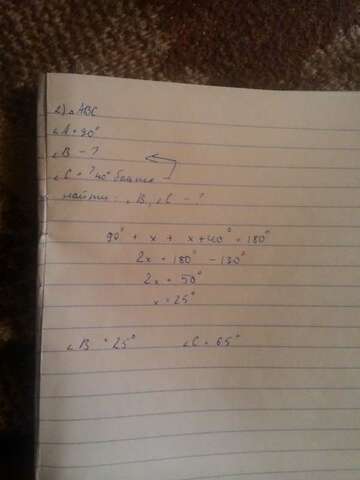 2) △ ABC
∠A = 90°
∠B - ?
∠C = ? 40° больше
найти: ∠B, ∠C - ?
90° + x + x + 40° = 180°
2x = 180° - 130°
2x = 50°
x = 25°
∠B = 25° ∠C = 65°